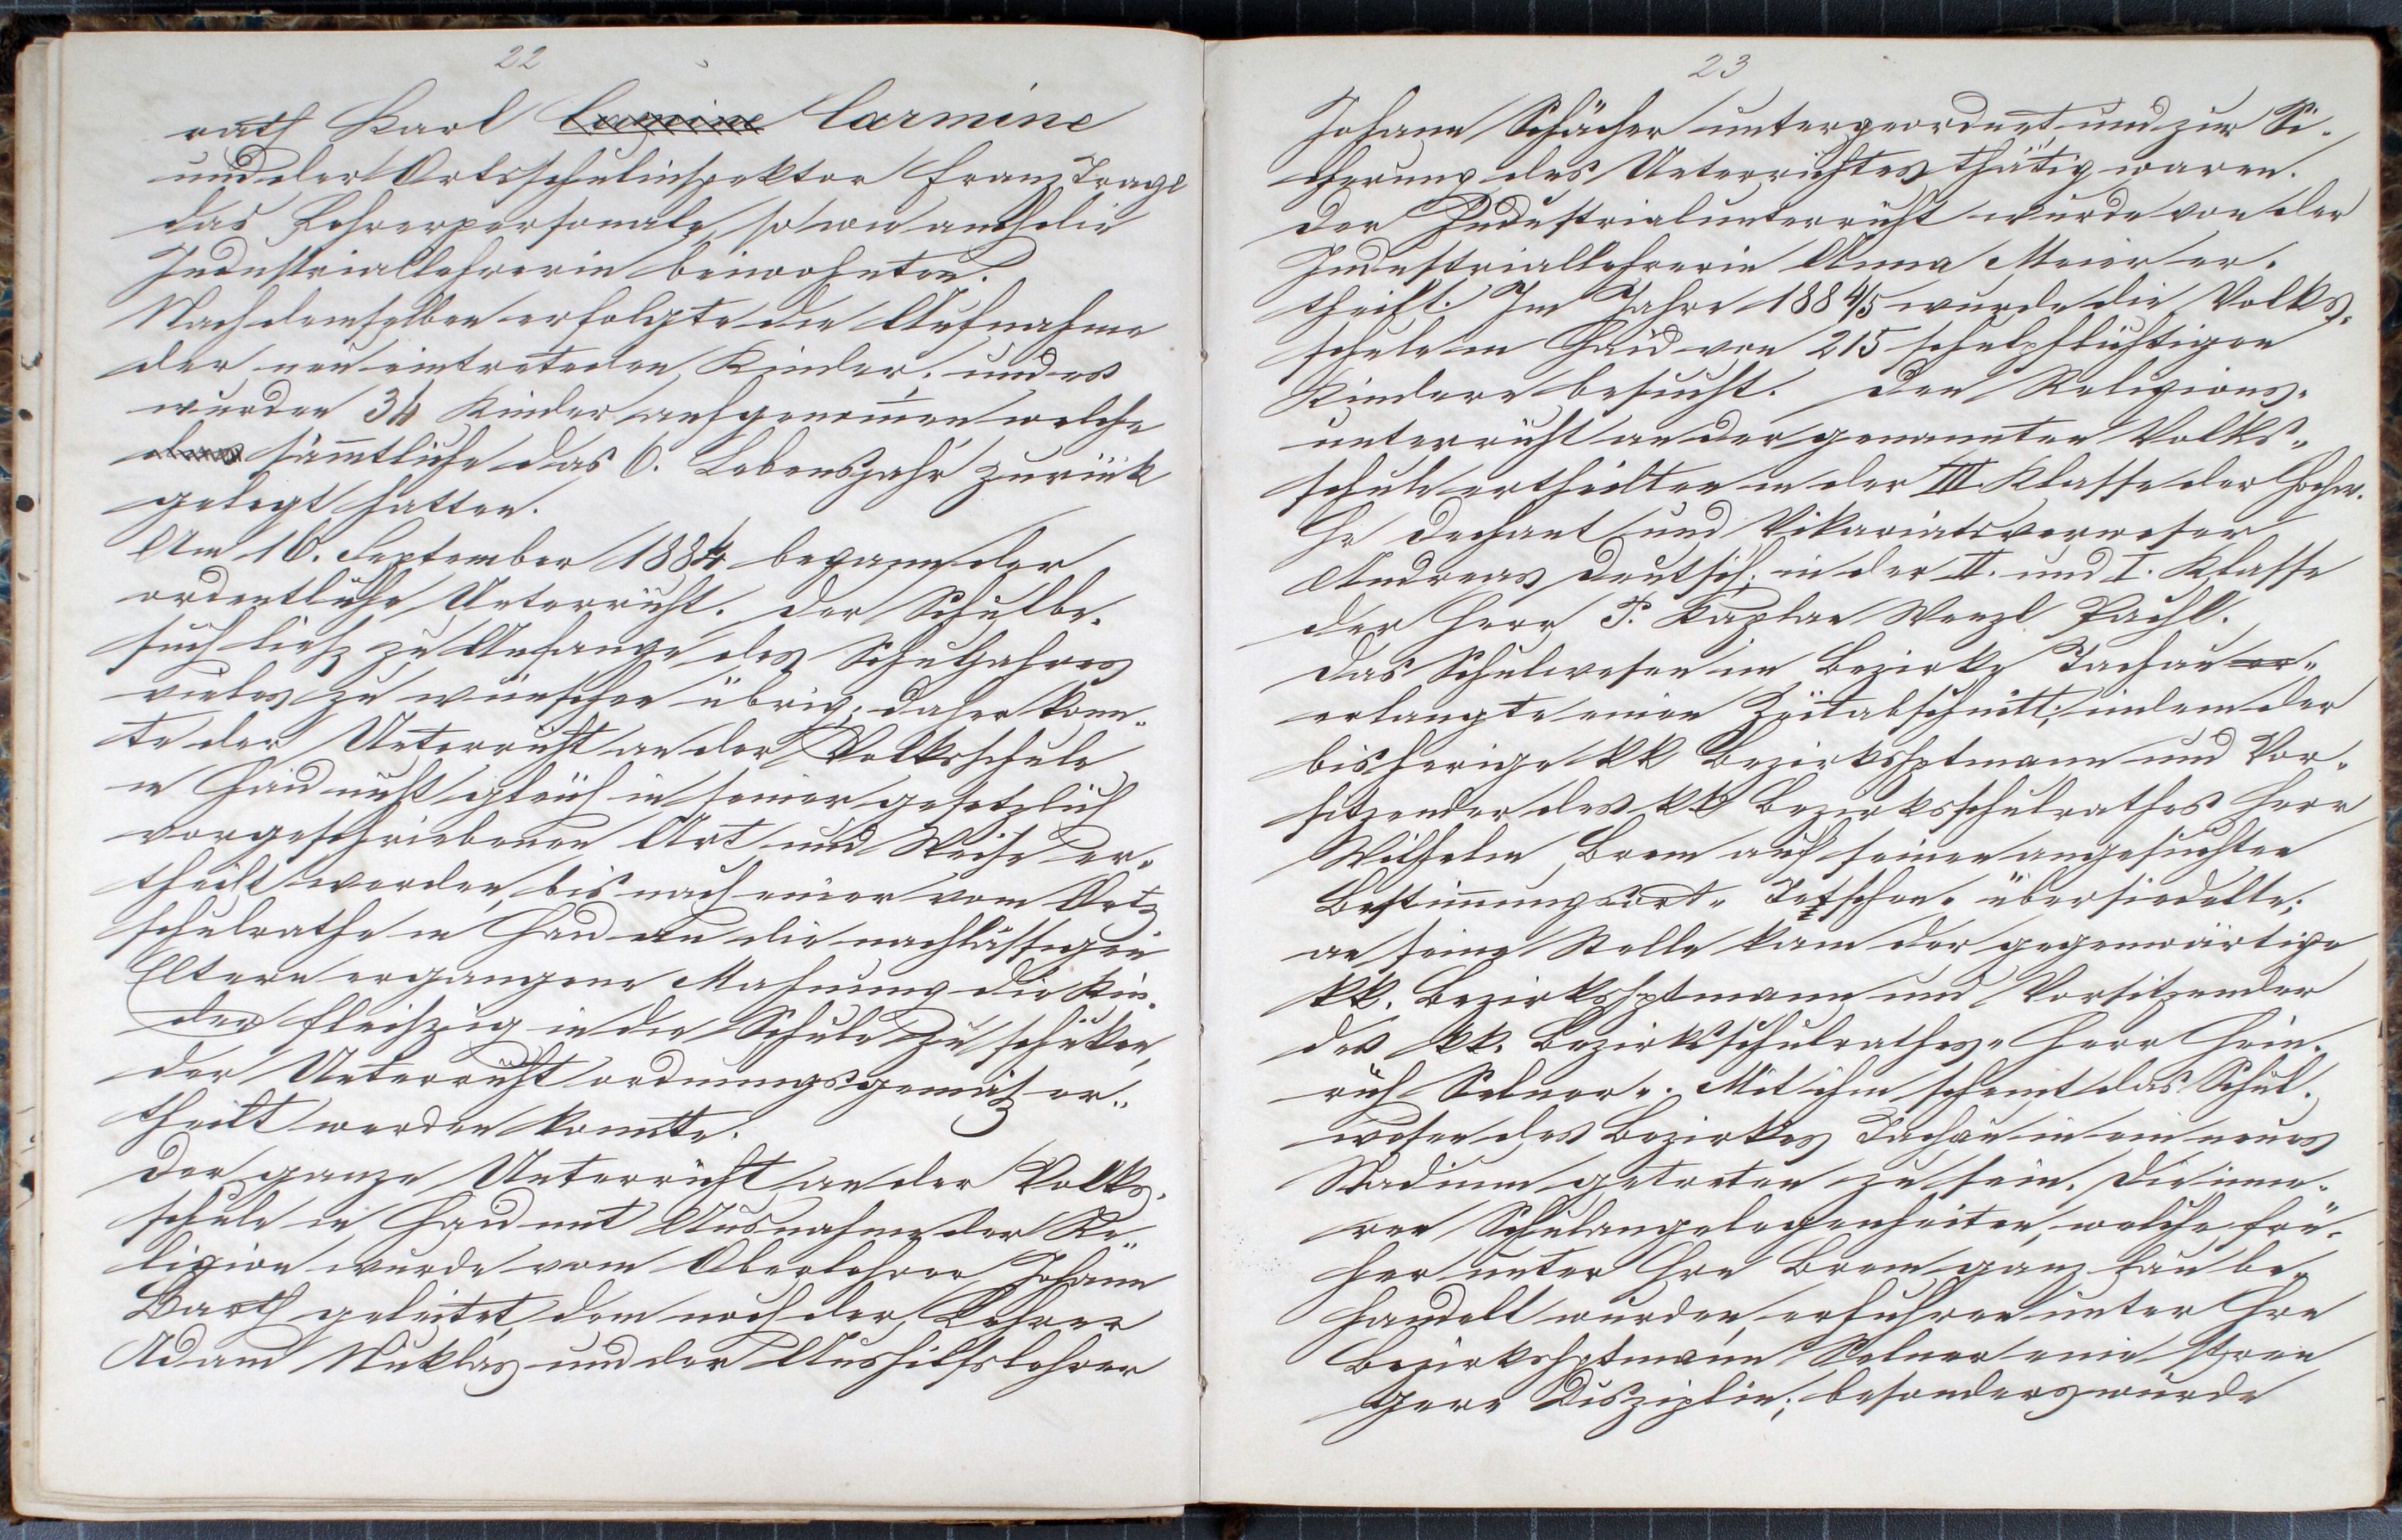 22
rath Karl Carmine
und der Ortsschulinspektor Franz Tragl
das Lehrerpersonale, so wie auch die
Industriallehrerin beiwohnten.
Nach demselben erfolgte die Aufnahme
der neu eintretenden Kinder, und es
wurden 34 Kinder aufgenom̄en welche
säm̄tliche das 6. Lebensjahr zurück
gelegt hatten.
Am 16. September 1884 begann der
ordentliche Unterricht. Der Schulbe-
such ließ zu Anfange des Schuljahres
vieles zu wünschen übrig; daher konn-
te der Unterricht an der Volksschule
in Haid nicht gleich in seiner gesetzlich
vorgeschriebenen Art und Weise er-
theilt werden, bis nach einer vom Orts
schulrathe in Haid an die nachlässigen
Eltern ergangene Mahnung die Kin-
der fleißig in die Schule zu schicken,
der Unterricht ordnungsgemäß er-
theilt werden konnte.
Der ganze Unterricht an der Volks-
schule in Haid mit Ausnahme der Re-
ligion wurde vom Oberlehrer Johann
Barth geleitet, dem noch der Lehrer
Adam Miklas und der Aushilfslehrer
23
Johann Schächer untergeordnet und zur Si-
cherung des Unterrichtes thätig waren.
Der Industrialunterricht wurde von der
Industriallehrerin Anna Meier er-
theilt. Im Jahre 1884/5 wurde die Volks-
schule in Haid von 215 schulpflichtigen
Kindern besucht. Den Religions-
unterricht an der genannten Volks-
schule ertheilten in der III. Klasse der Hochw.
Hr Dechant und Vikariatsverweser
Andreas Deutsch; in der II. und I. Klasse
der Herr P. Kaplan Wenzl Pachl.
Das Schulwesen im Bezirke Tachau er-
erlangte einen Zeitabschnitt; indem der
bisherige kk Bezirkshptmann und Vor-
sitzender des kk Bezirksschulrathes Herr
Wilhelm Brem auf seinen angesuchten
Bestim̄ungsort „Tetschen“ übersiedelte;
an seine Stelle kam der gegenwärtige
kk. Bezirkshptmann und Vorsitzender
des kk. Bezirksschulrathes „Herr Hein-
rich Selner“. Mit ihm scheint das Schul-
wesen des Bezirkes Tachau in ein neues
Stadium getreten zu sein. Die inne-
ren Schulangelegenheiten, welche frü-
her unter Hrn Brem ganz lau be-
handelt wurden, erfuhren unter Hrn
Bezirkshptmann Selner eine stren
gere Disziplin; besonders wurde